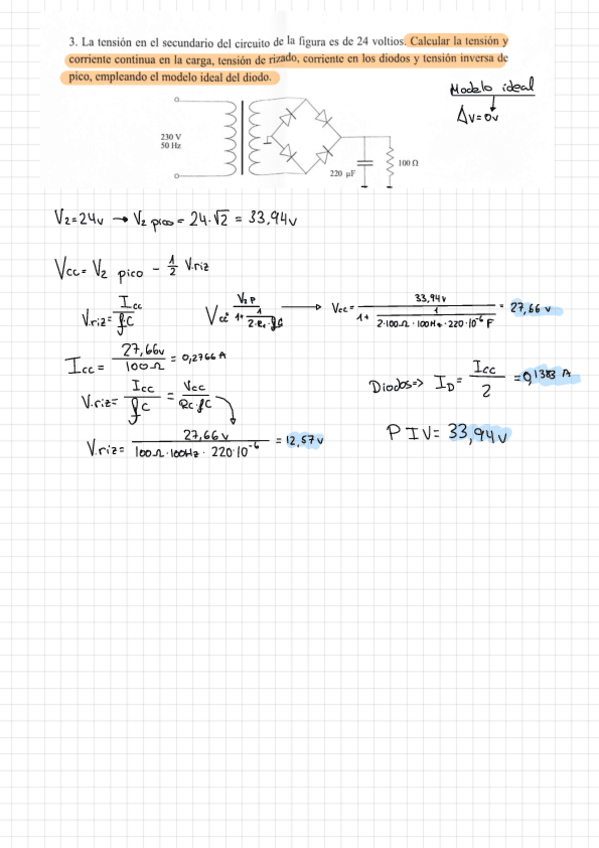 3. La tensión en el secundario del circuito de la figura es de 24 voltios. Calcular la tensión y
corriente continua en la carga, tensión de rizado, corriente en los diodos y tensión inversa de
pico, empleando el modelo ideal del diodo.
Modelo ideal
ΔV=0v
230 V
50 Hz
100 Ω
220 µF
V2=24v → V2 pico = 24·√2 = 33,94v
Vcc= V2 pico - 1/2 V.riz
V.riz= Icc / f·C
Vcc= V2P / (1+ 1/(2·Rc·fC)) → Vcc= 33,94v / (1+ 1/(2·100Ω·100Hz·220·10^-6 F)) = 27,66 v
Icc= 27,66v / 100Ω = 0,2766 A
V.riz= Icc / fC = Vcc / Rc·fC
Diodos=> ID= Icc / 2 = 0,1383 A
V.riz= 27,66v / 100Ω·100Hz·220·10^-6 = 12,57v
PIV= 33,94v